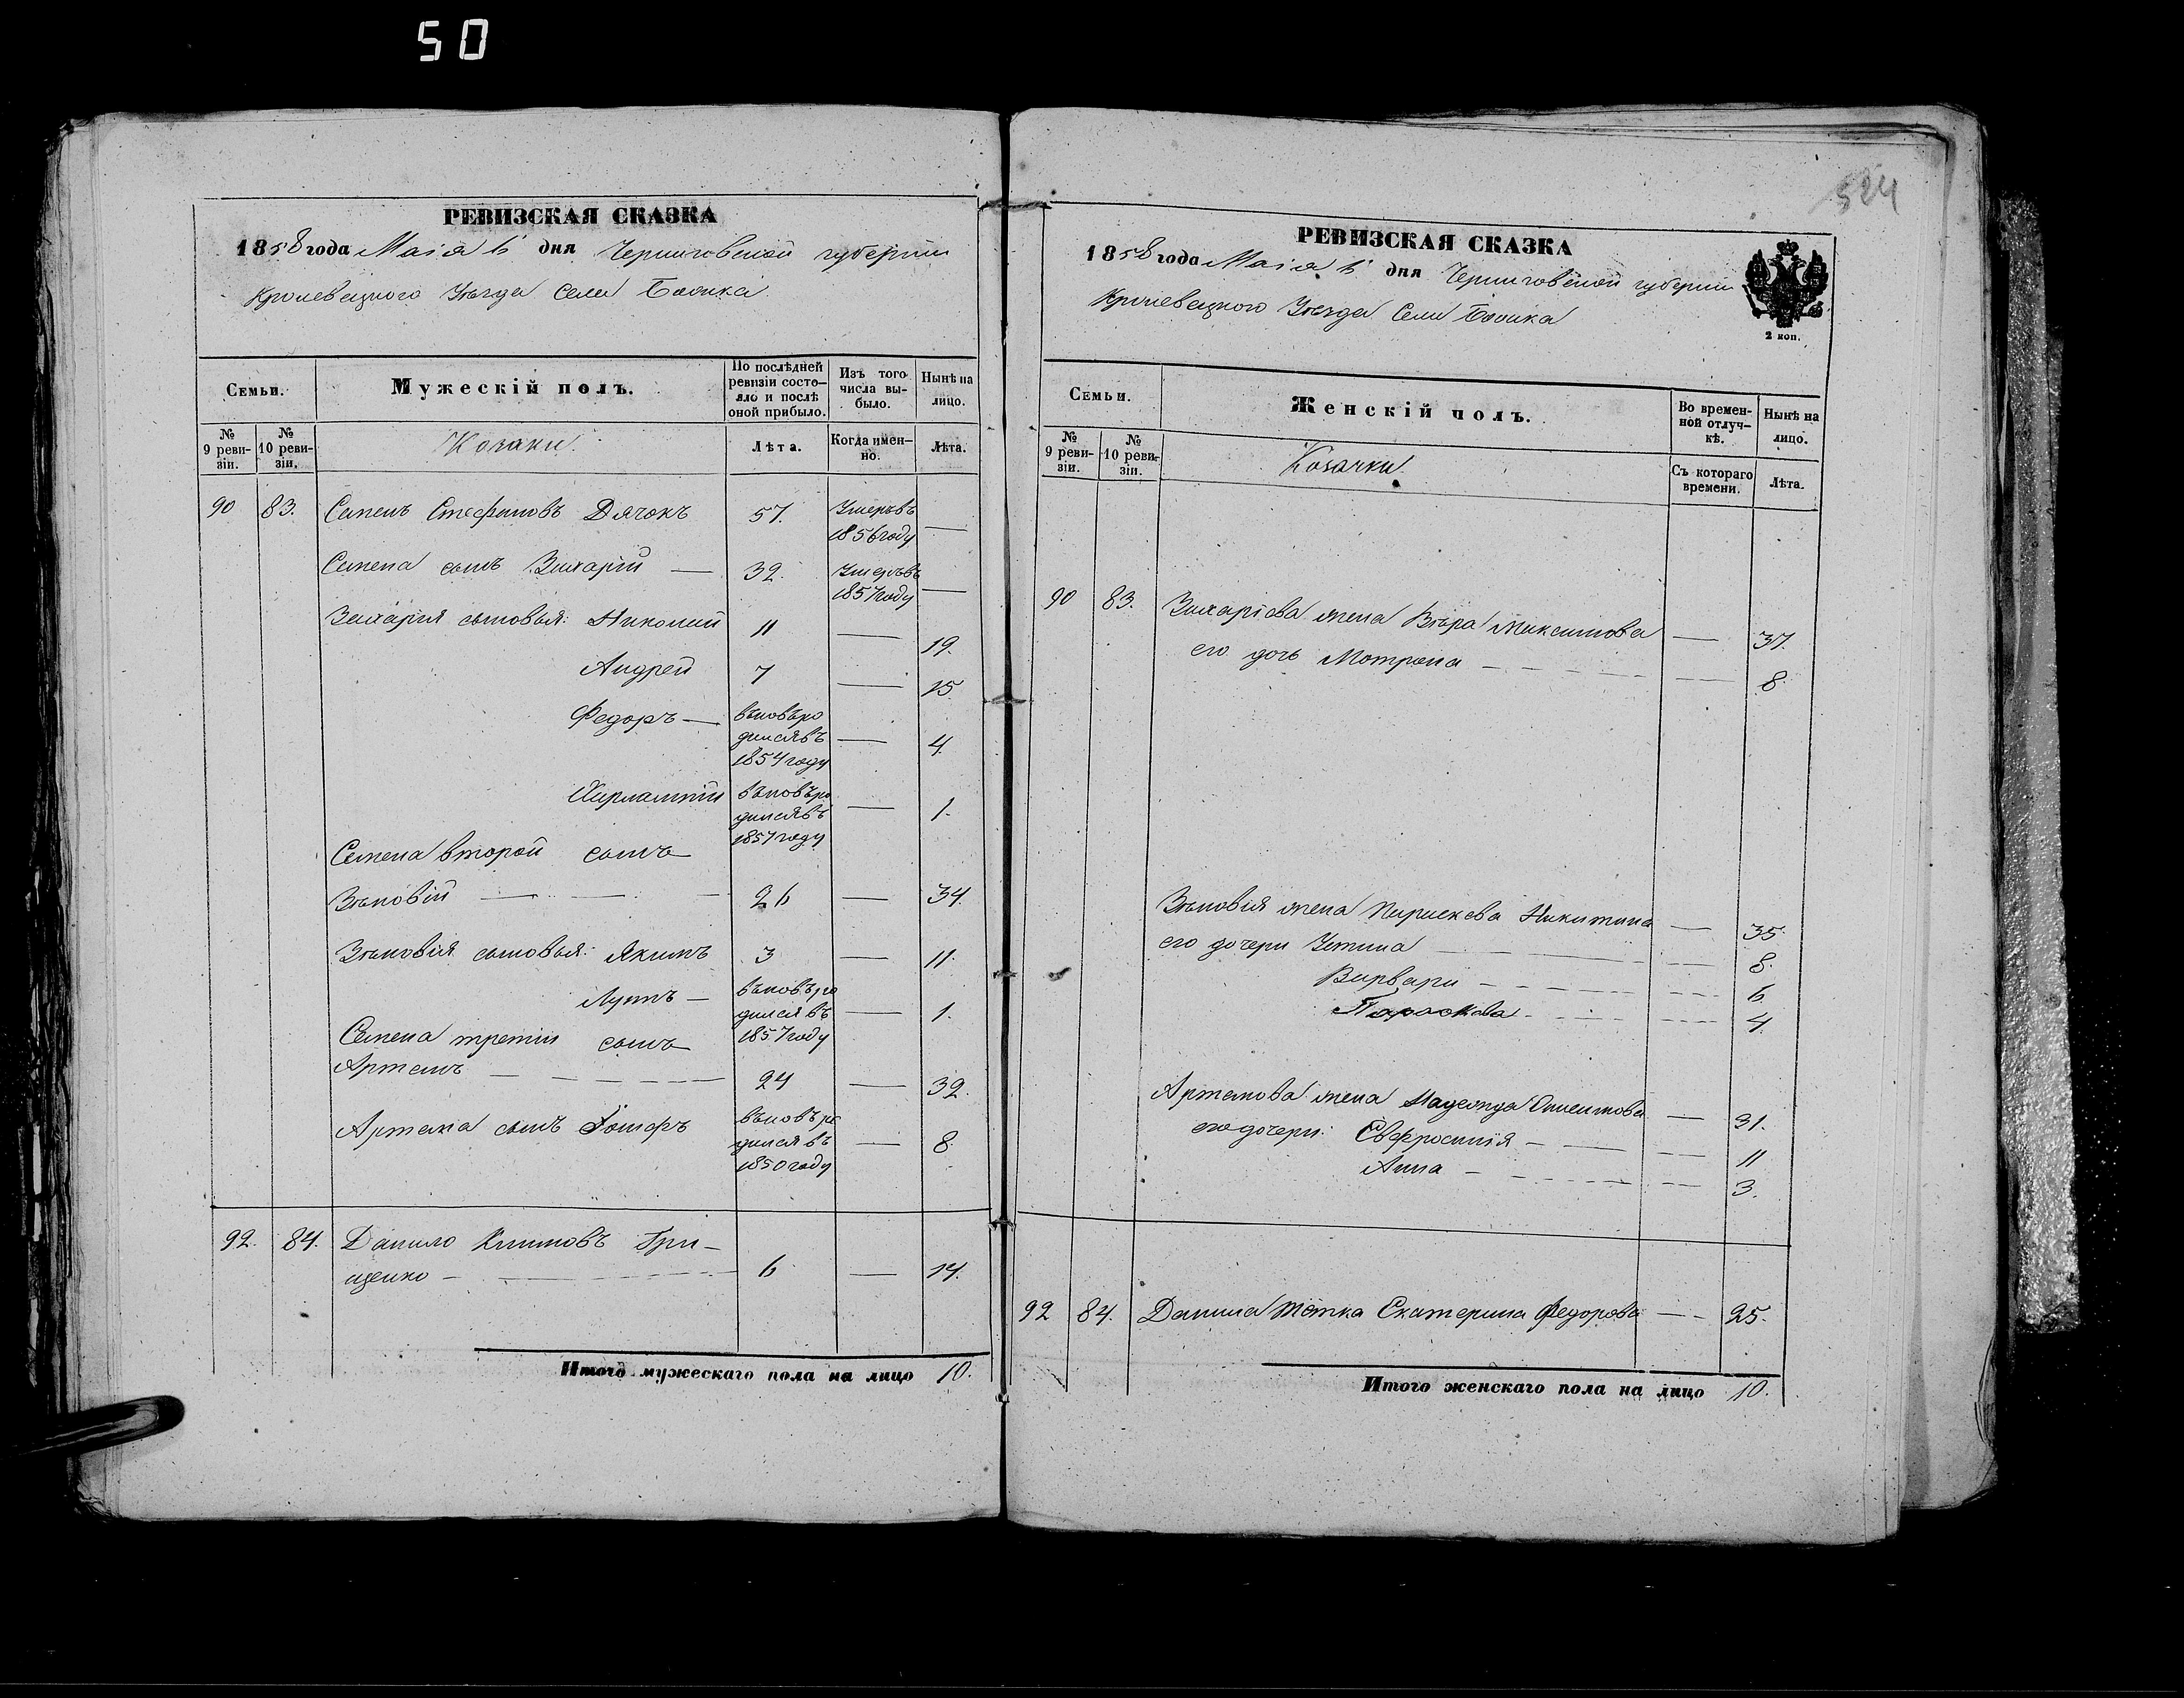 50
РЕВИЗСКАЯ СКАЗКА
1858 года Маія 6 дня Черниговской губерніи
Кролевецкого Уѣзда Села
Семьи.
Мужескій полъ.
По послѣдней ревизіи состояло и послѣ оной прибыло.
Изъ того числа выбыло.
Нынѣ на лицо.
№ 9 ревизіи.
№ 10 ревизіи.
Козаки.
Лѣта.
Когда именно.
Лѣта.
90 83. Семенъ Стефановъ Дячокъ 57. Умеръ въ 1856 году —
Семена сынъ Захарій — 32. Умеръ въ 1857 году —
Захарія сыновья: Николай 11 — 19.
Андрей 7 — 15.
Федоръ — вновь родился въ 1854 году — 4.
Харлампій вновь родился въ 1857 году — 1.
Семена второй сынъ
Зѣновій — — — 26 — 34.
Зѣновія сыновья: Якимъ 3 — 11.
Лупъ — вновь родился въ 1857 году — 1.
Семена третій сынъ
Артемъ — — — — 24 — 32.
Артема сынъ Іосифъ вновь родился въ 1850 году — 8.
92. 84. Данило Климовъ Гри-
ценко — — — — 6 — 14.
Итого мужескаго пола на лицо 10.
524
РЕВИЗСКАЯ СКАЗКА
1858 года Маія 6 дня Черниговской губерніи
Кролевецкого Уѣзда Села
2 коп.
Семьи.
Женскій полъ.
Во временной отлучкѣ.
Нынѣ на лицо.
№ 9 ревизіи.
№ 10 ревизіи.
Козачки.
Съ котораго времени.
Лѣта.
90 83. Захаріева жена Вѣра Максимова — 37.
его дочь Мотрона — — — — 8.
Зѣновія жена Параскева Никитина — 35.
его дочери Устина — — — 8.
Варвара — — — — 6.
Параскева — — — 4.
Артемова жена Анисимова — 31.
его дочери: Евфросинія — — — 11
Анна — — — — 3.
92 84. Данила Матка Екатерина Федорова — — 25.
Итого женскаго пола на лицо 10.